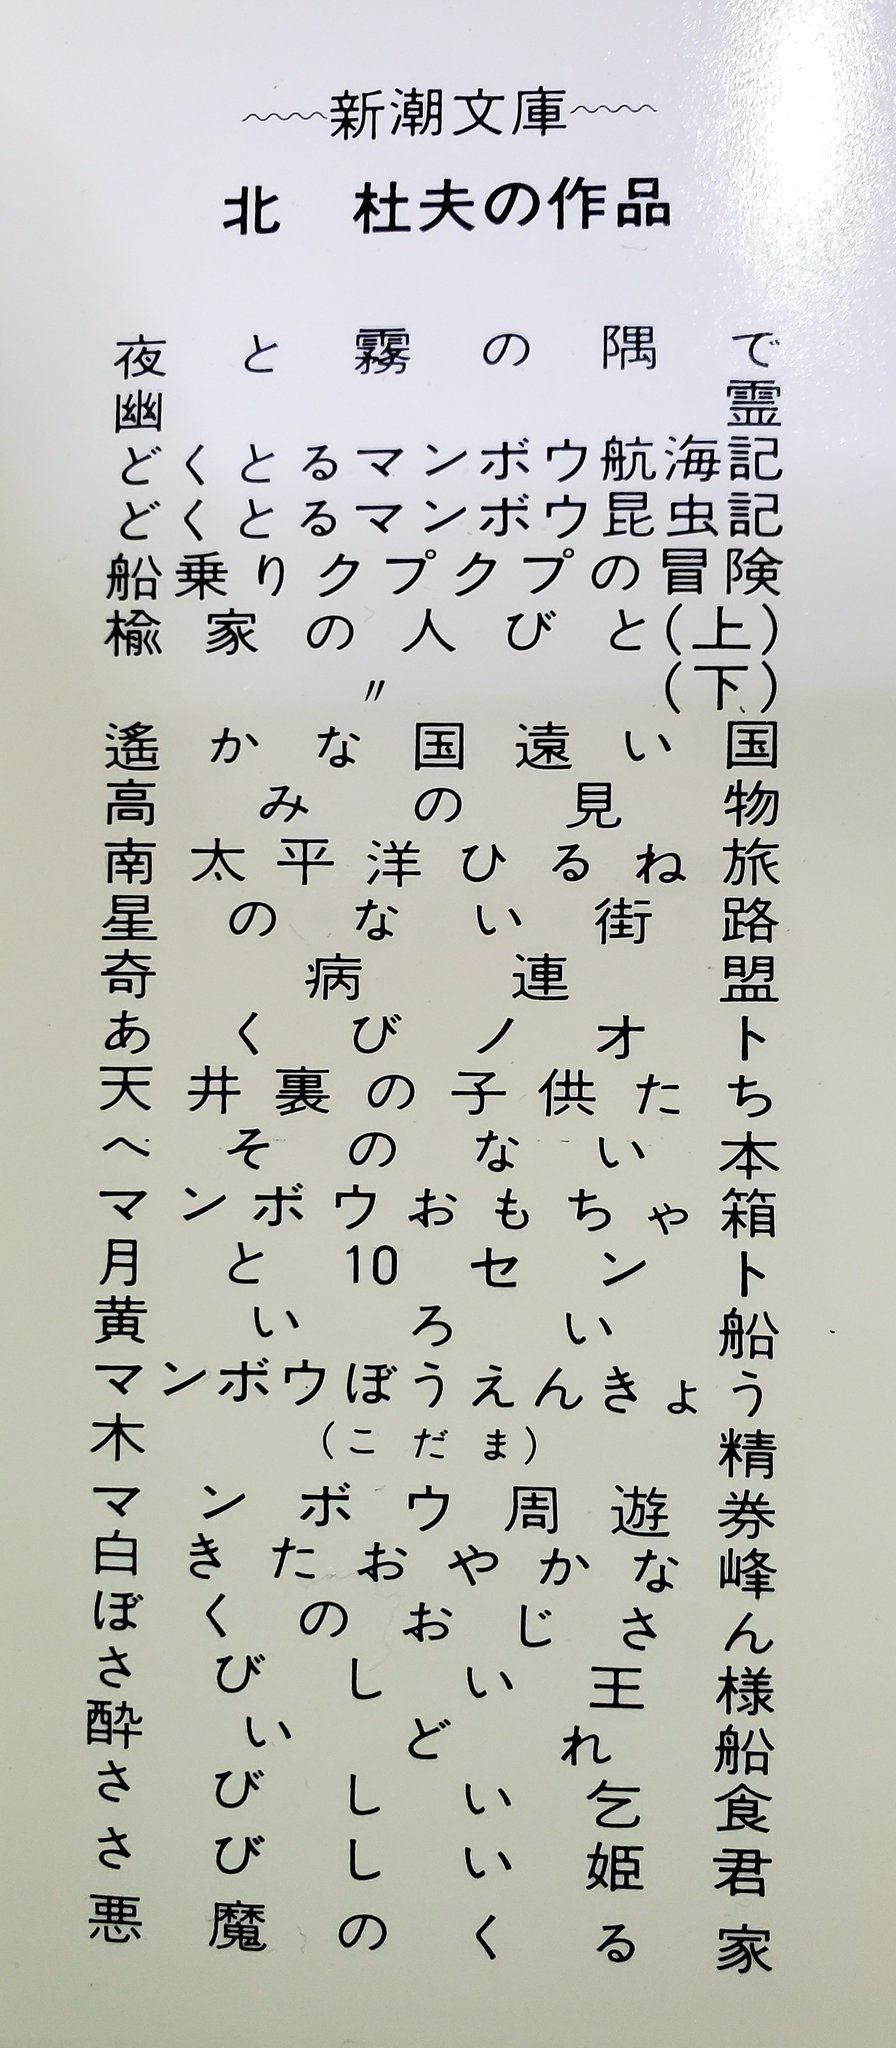 新潮文庫
北 杜夫の作品
夜と霧の隅で
幽霊
どくとるマンボウ航海記
どくとるマンボウ昆虫記
船乗りクプクプの冒険
楡家の人びと(上)
〃(下)
遙かな国遠い国
高みの見物
南太平洋ひるね旅
星のない街路
奇病連盟
あくびノオト
天井裏の子供たち
へそのない本
マンボウおもちゃ箱
月と10セント
黄いろい船
マンボウぼうえんきょう
木精(こだま)
マンボウ周遊券
白きたおやかな峰
ぼくのおじさん
さびしい王様
酔いどれ船
さびしい乞食
さびしい姫君
悪魔のくる家